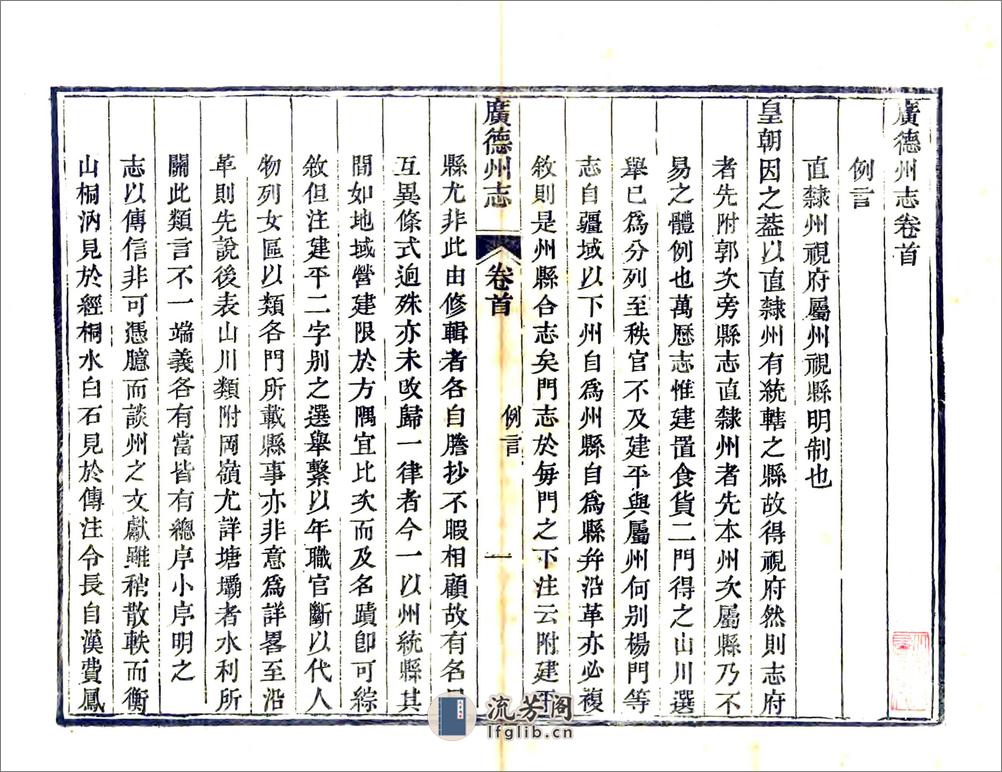 廣德州志卷首
例言
直隸州視府屬州視縣明制也
皇朝因之葢以直隸州有統轄之縣故得視府然則志府
者先附郭次旁縣志直隸州者先本州次屬縣乃不
易之體例也萬歷志惟建置食貨二門得之山川選
舉已爲分列至秩官不及建平與屬州何别楊門等
志自疆域以下州自爲州縣自爲縣幷沿革亦必複
敘則是州縣合志矣門志於每門之下注云附建平
廣德州志
卷首
例言
一
縣尤非此由修輯者各自謄抄不暇相顧故有名
互異條式逈殊亦未攺歸一律者今一以州統縣其
間如地域營建限於方隅宜比次而及名蹟卽可綜
敘但注建平二字别之選舉繫以年職官斷以代人
物列女區以類各門所載縣事亦非意爲詳畧至沿
革則先說後表山川類附岡嶺尤詳塘壩者水利所
關此類言不一端義各有當皆有總序小序明之
志以傳信非可憑臆而談州之文獻雖稍散軼而衡
山桐汭見於經桐水白石見於傳注令長自漢費鳳
流芳阁
lfglib.cn